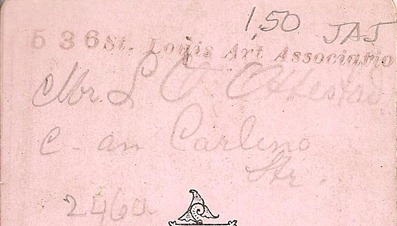 1.50 JAJ
536 St. Louis Art Associatio
Mr. L O
C - an Carlino
Str.
2460